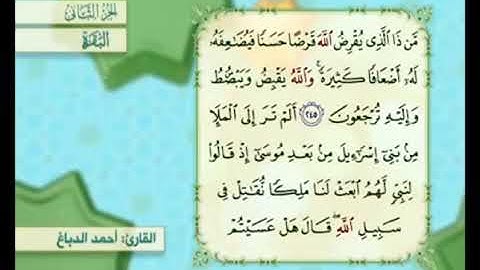 الجزء الثاني
البقرة
مَّن ذَا الَّذِي يُقْرِضُ اللَّهَ قَرْضًا حَسَنًا فَيُضَاعِفَهُۥ
لَهُۥٓ أَضْعَافًا كَثِيرَةً ۚ وَاللَّهُ يَقْبِضُ وَيَبْصُۜطُ
وَإِلَيْهِ تُرْجَعُونَ ٢٤٥ أَلَمْ تَرَ إِلَى الْمَلَإِ
مِن بَنِيٓ إِسْرَٰٓءِيلَ مِن بَعْدِ مُوسَىٰٓ إِذْ قَالُوا
لِنَبِيٍّ لَّهُمُ ابْعَثْ لَنَا مَلِكًا نُّقَٰتِلْ فِي
سَبِيلِ اللَّهِ ۖ قَالَ هَلْ عَسَيْتُمْ
القارئ: أحمد الدباغ